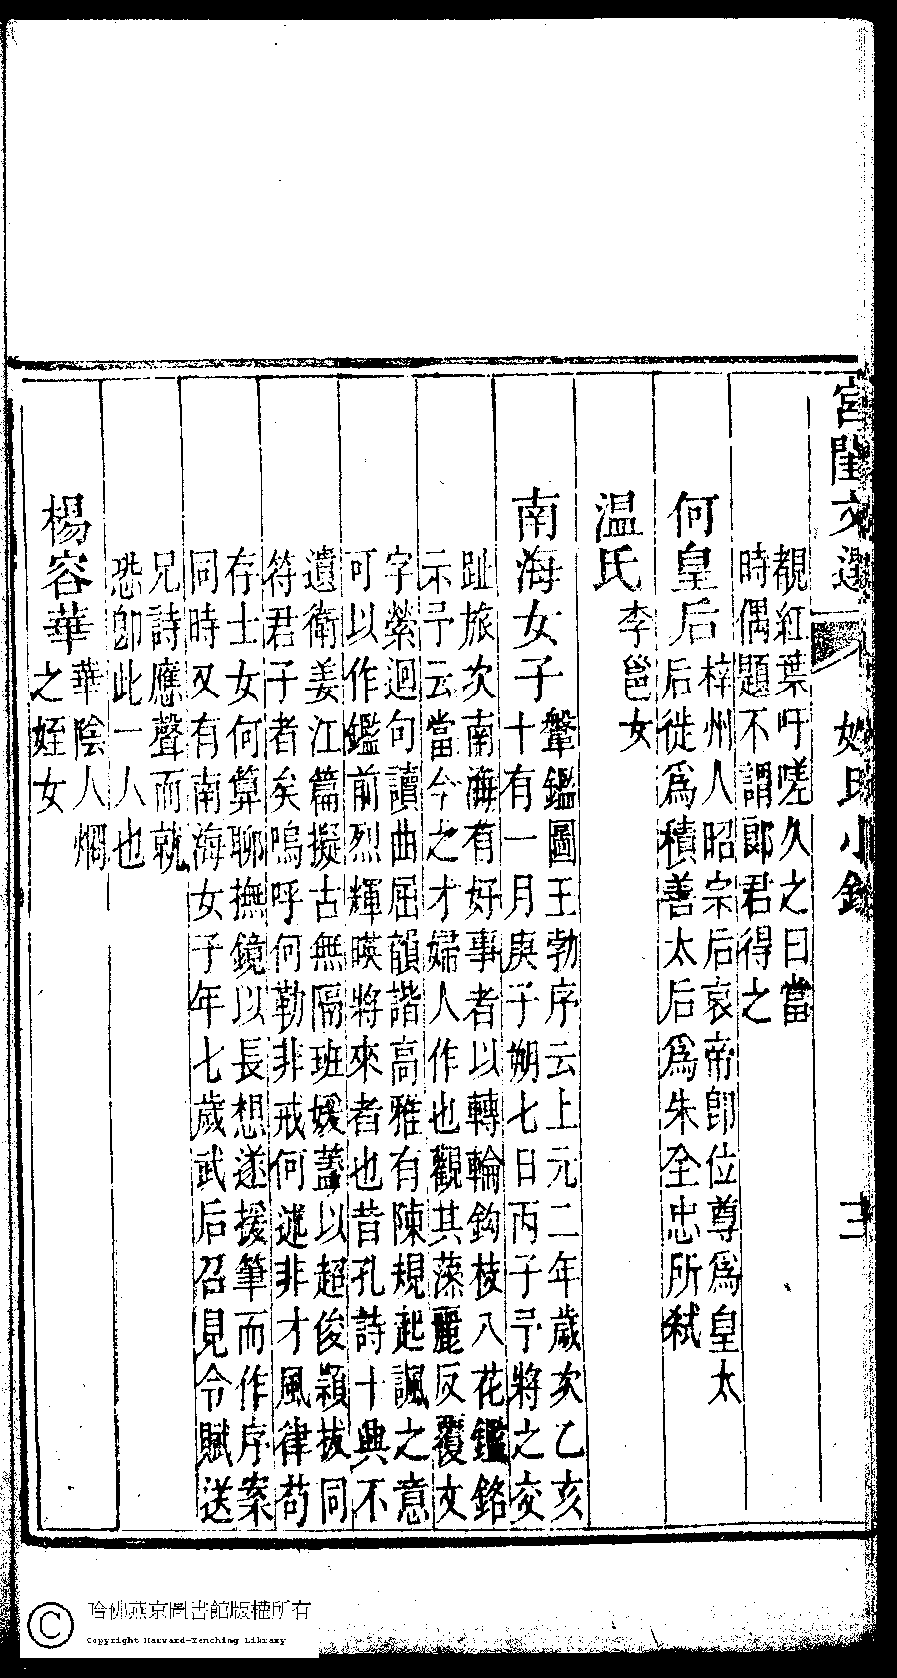 宮閨文選
姓氏小錄
三
覩紅葉吁嗟久之曰當
時偶題不謂郎君得之
何皇后
梓州人昭宗后哀帝卽位尊爲皇太
后后徙爲積善太后爲朱全忠所弑
温氏
李邕女
南海女子
鞶鑑圖王勃序云上元二年歲次乙亥
十有一月庚子朔七日丙子予將之交
趾旅次南海有好事者以轉輪鈎枝八花鑑銘
示予云當今之才婦人作也觀其藻麗反覆文
字縈迴句讀曲屈韻諧高雅有陳規起諷之意
可以作鑑前烈輝暎將來者也昔孔詩十興不
遺衛姜江篇擬古無隔班媛蓋以超俊頴拔同
符君子者矣嗚呼何勒非戒何述非才風律苟
存士女何算聊撫鏡以長想遂援筆而作序案
同時又有南海女子年七歲武后召見令賦送
兄詩應聲而就
恐卽此一人也
楊容華
華陰人烱
之姪女
哈佛燕京圖書館版權所有
Copyright Harvard-Yenching Library